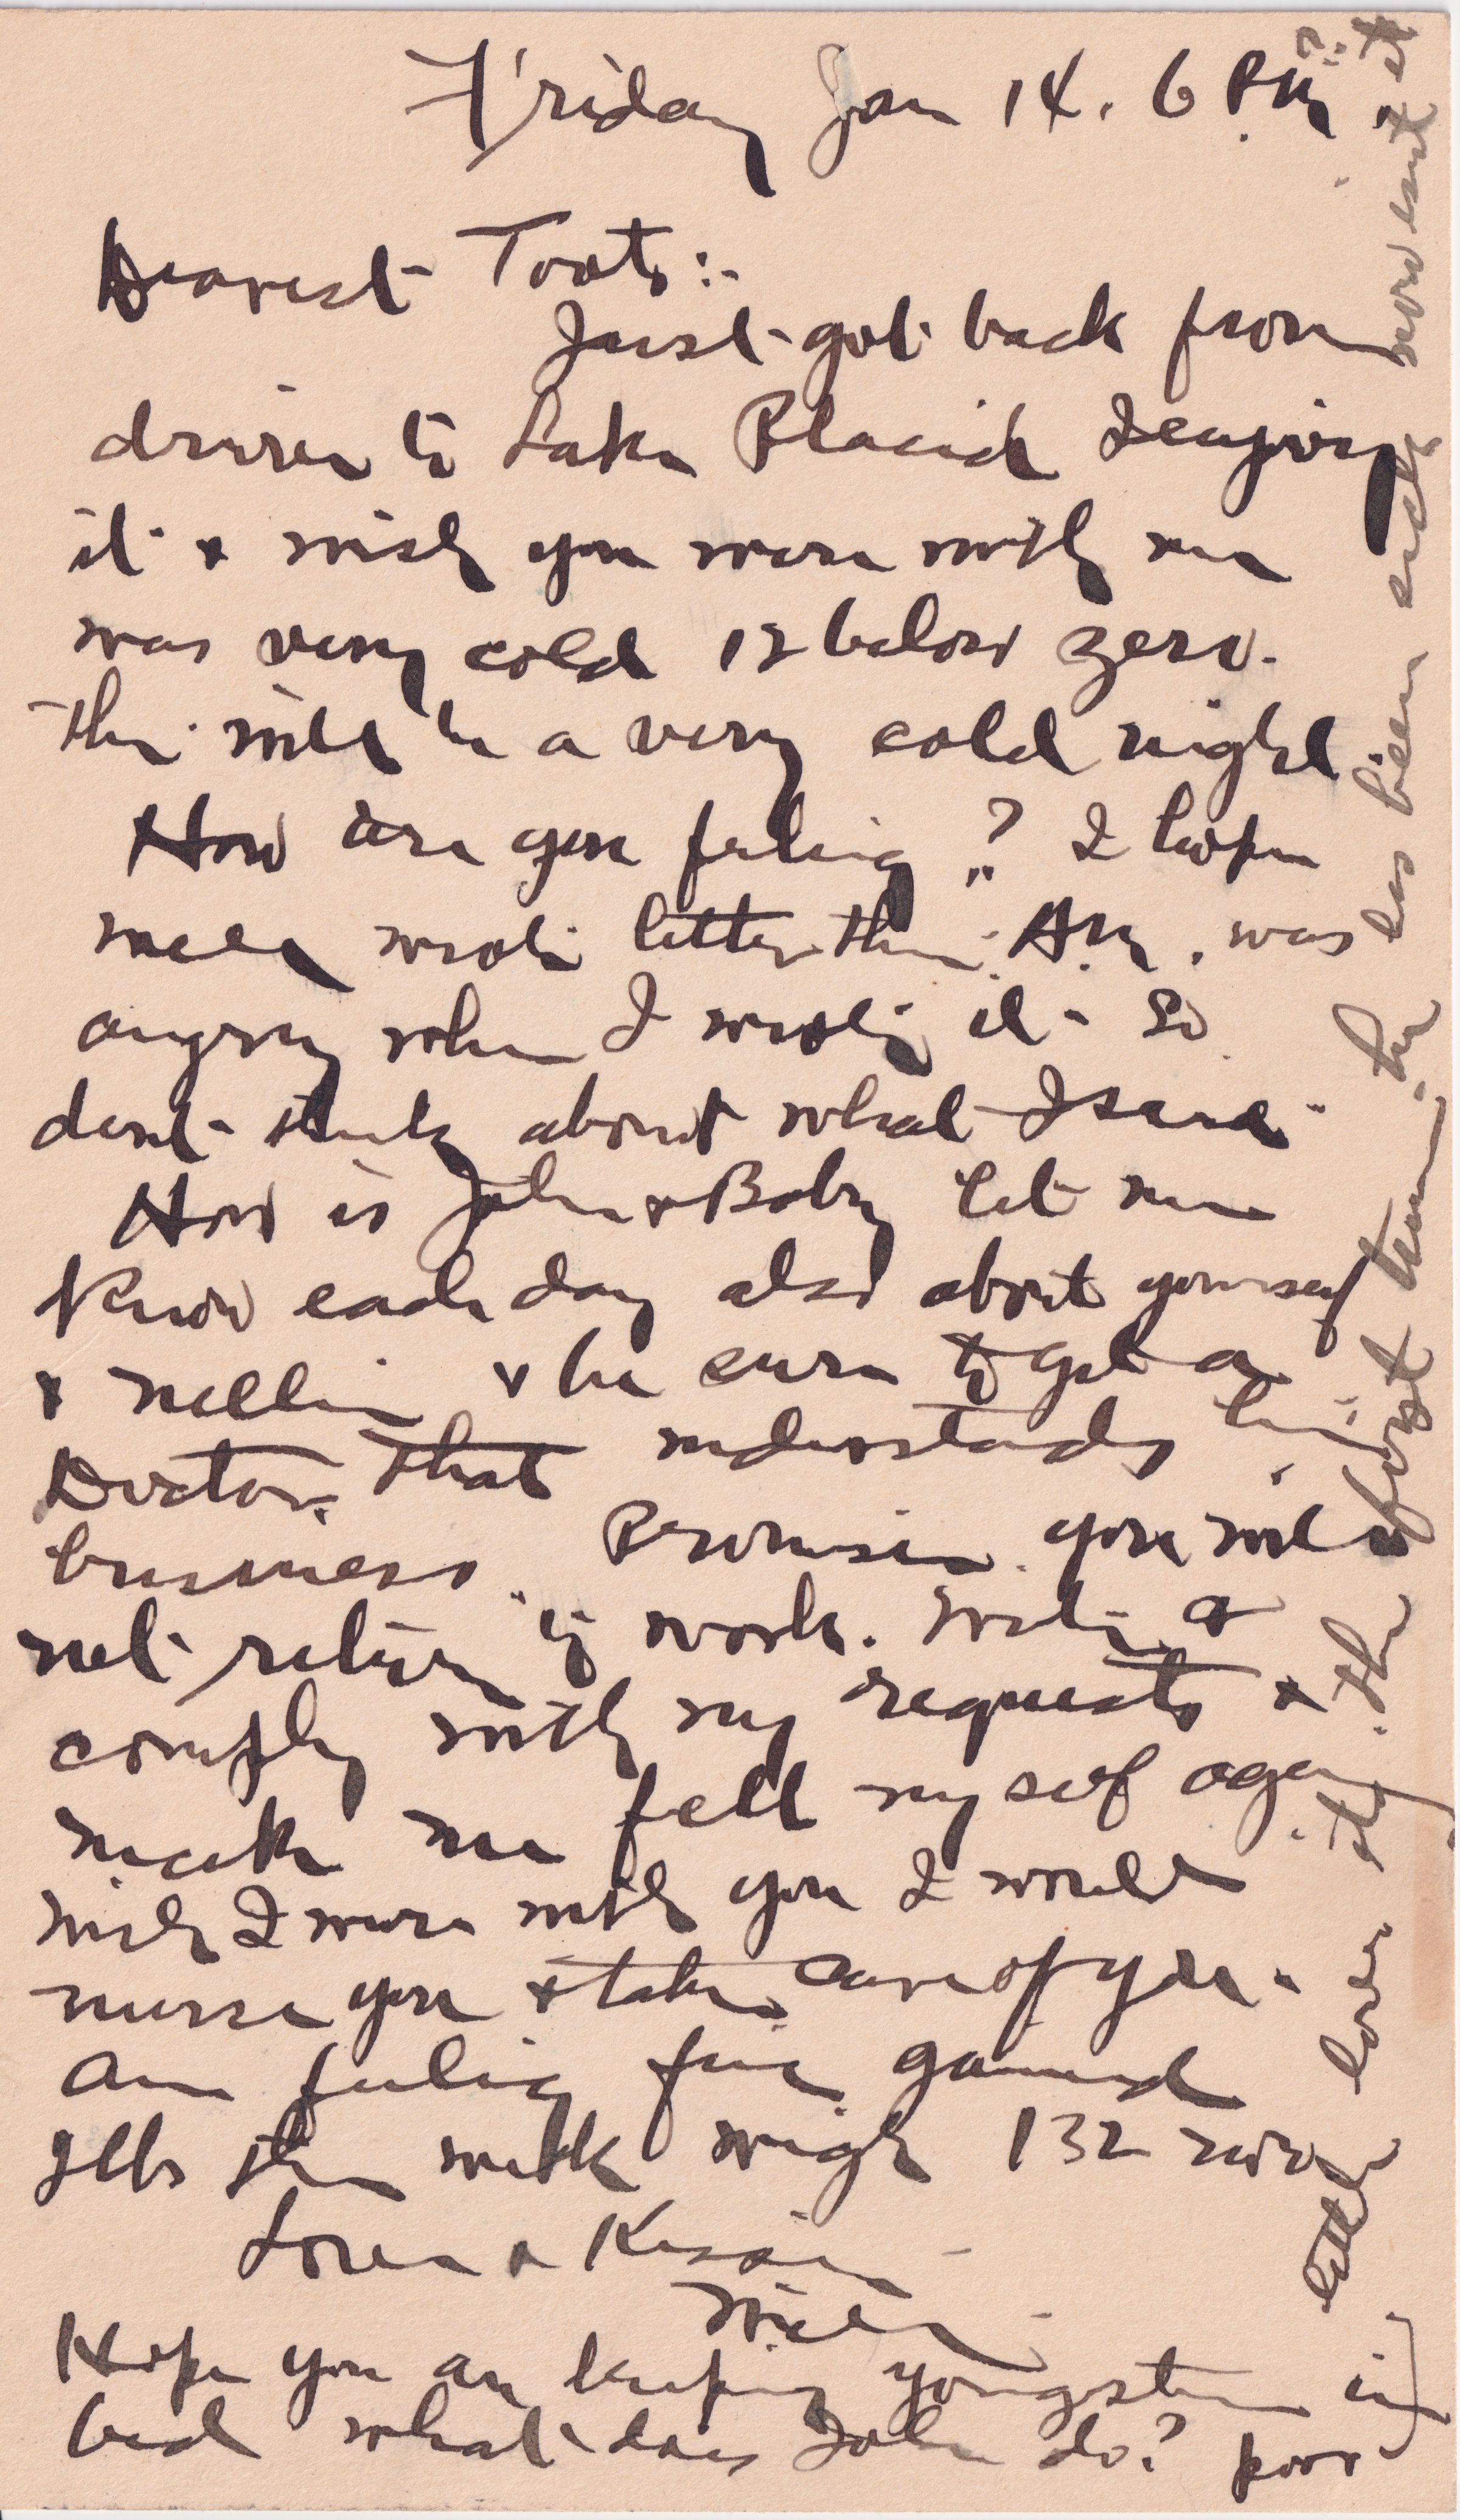 Friday Jan 14. 6 P.M.
Dearest Toots:-
Just got back from
drive to Lake Placid Enjoying
it & wish you were with me
was very cold 12 below zero.
this will be a very cold night
How are you feeling? I hope
well wrote letter this A.M. was
angry when I wrote it - so
dont think about what I said
How is John & Baby let me
know each day also about yourself
& Nellie & be sure to get a
Doctor that understands his
business. Promise you will
not return to work. Write &
comply with my requests &
make me fell myself again
wish I were with you I would
nurse you & take care of you.
Am feeling fine gained
2 lbs this week weigh 132 now
Love & Kisses
Will
Hope you are keeping yongster in
bed what does John do? poor
little lover its the first time he has been sick now isnt it?